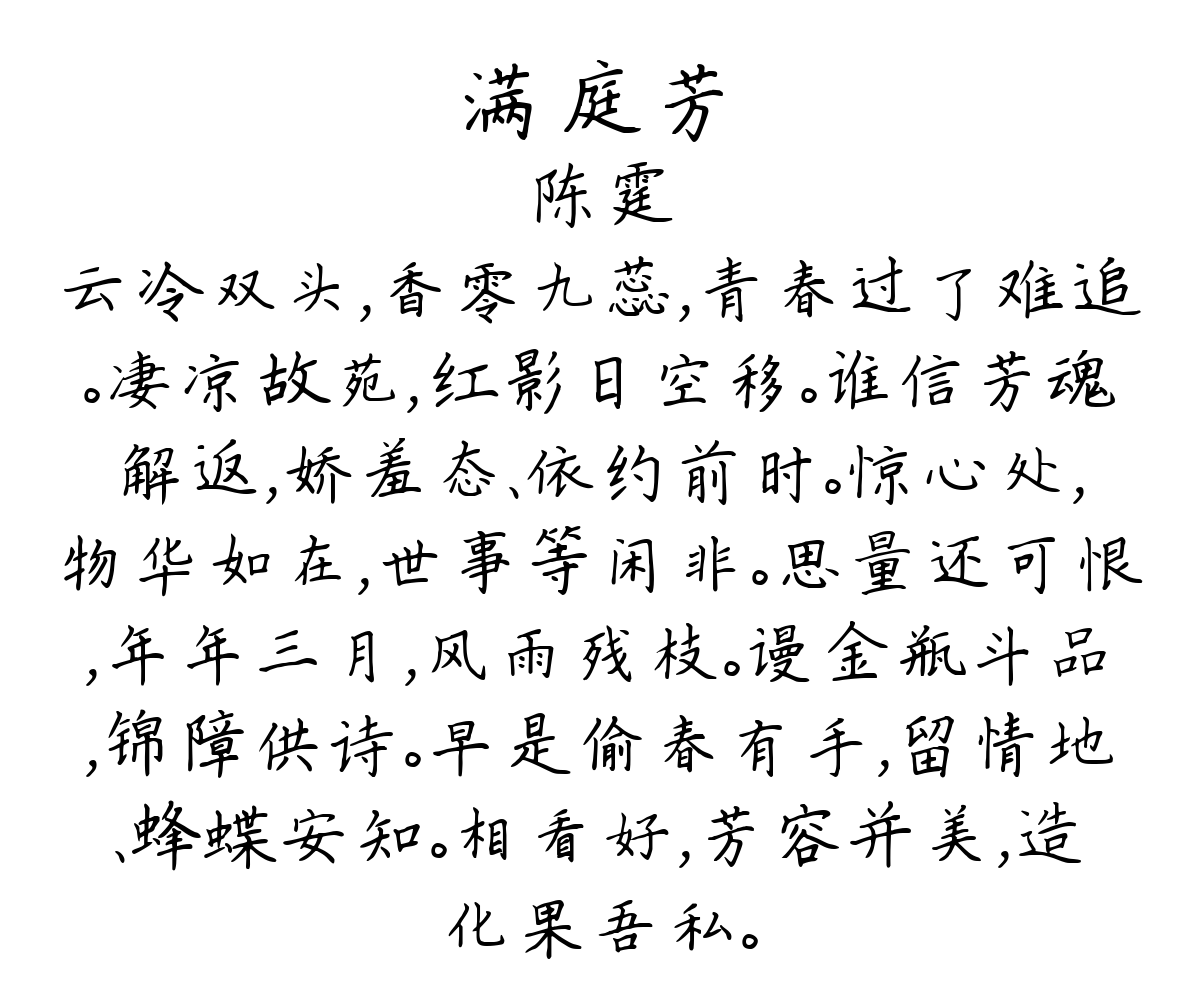 满庭芳
陈霆
云冷双头,香零九蕊,青春过了难追
。凄凉故苑,红影日空移。谁信芳魂
解返,娇羞态、依约前时。惊心处,
物华如在,世事等闲非。思量还可恨
,年年三月,风雨残枝。谩金瓶斗品
,锦障供诗。早是偷春有手,留情地
、蜂蝶安知。相看好,芳容并美,造
化果吾私。